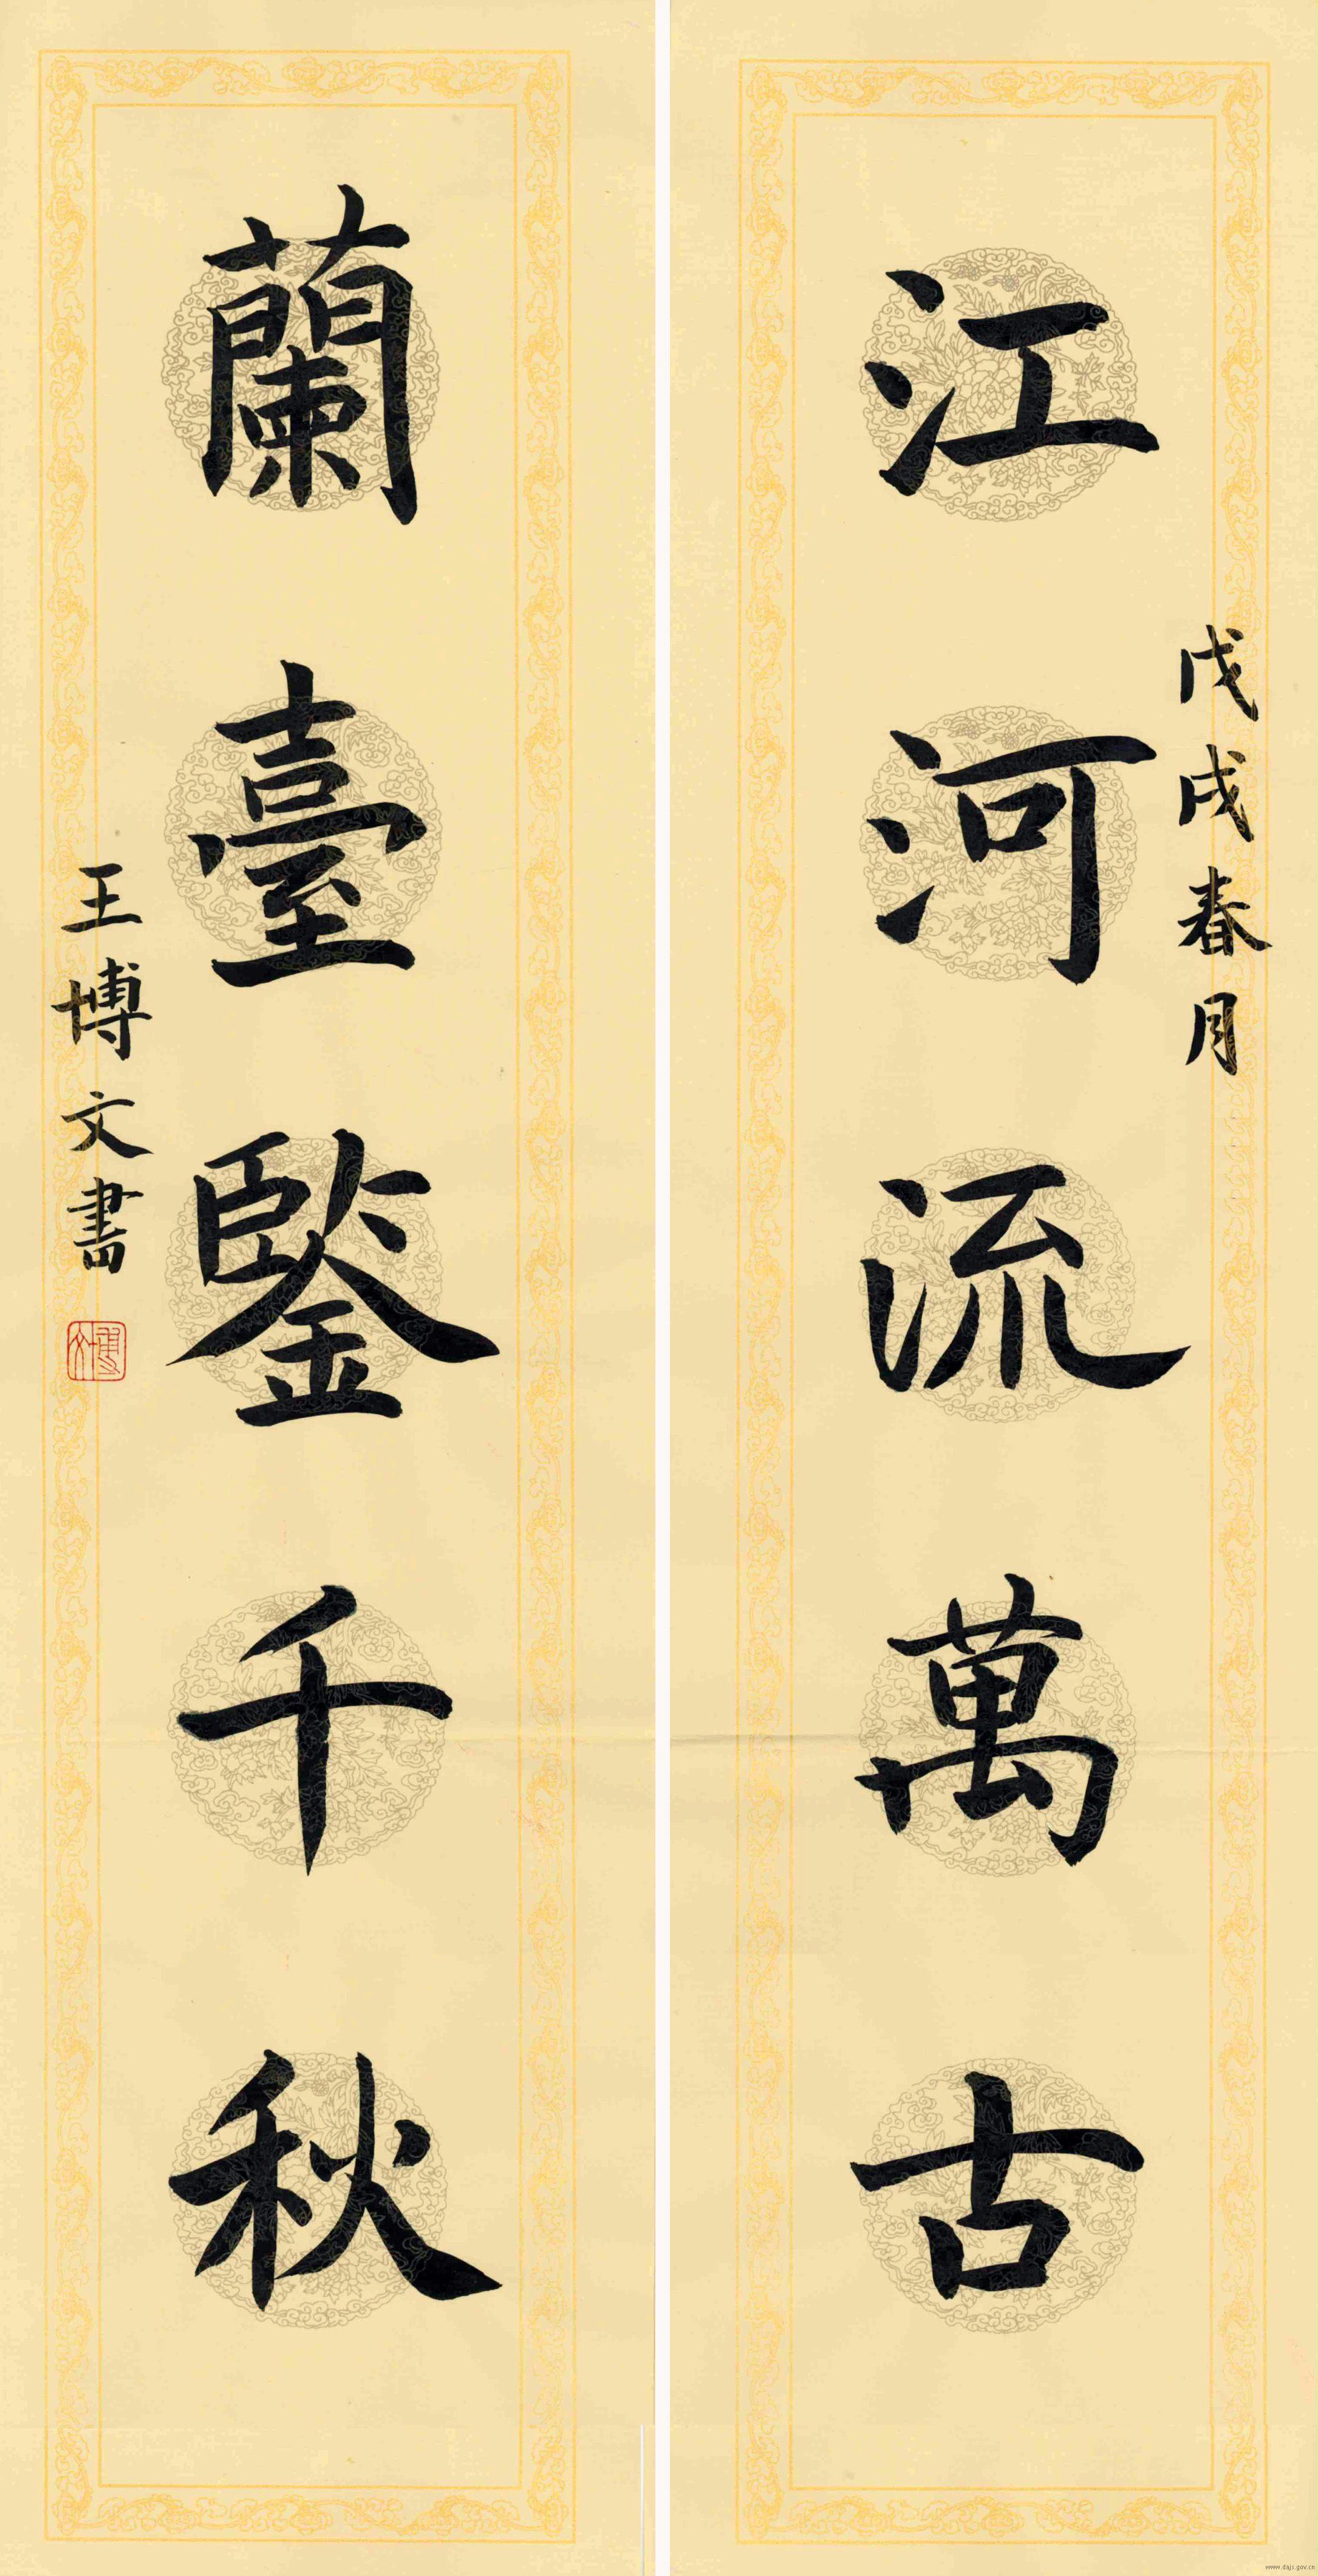 戊戌春月
江河流萬古
蘭臺鑒千秋
王博文書
博文
www.dajs.gov.cn